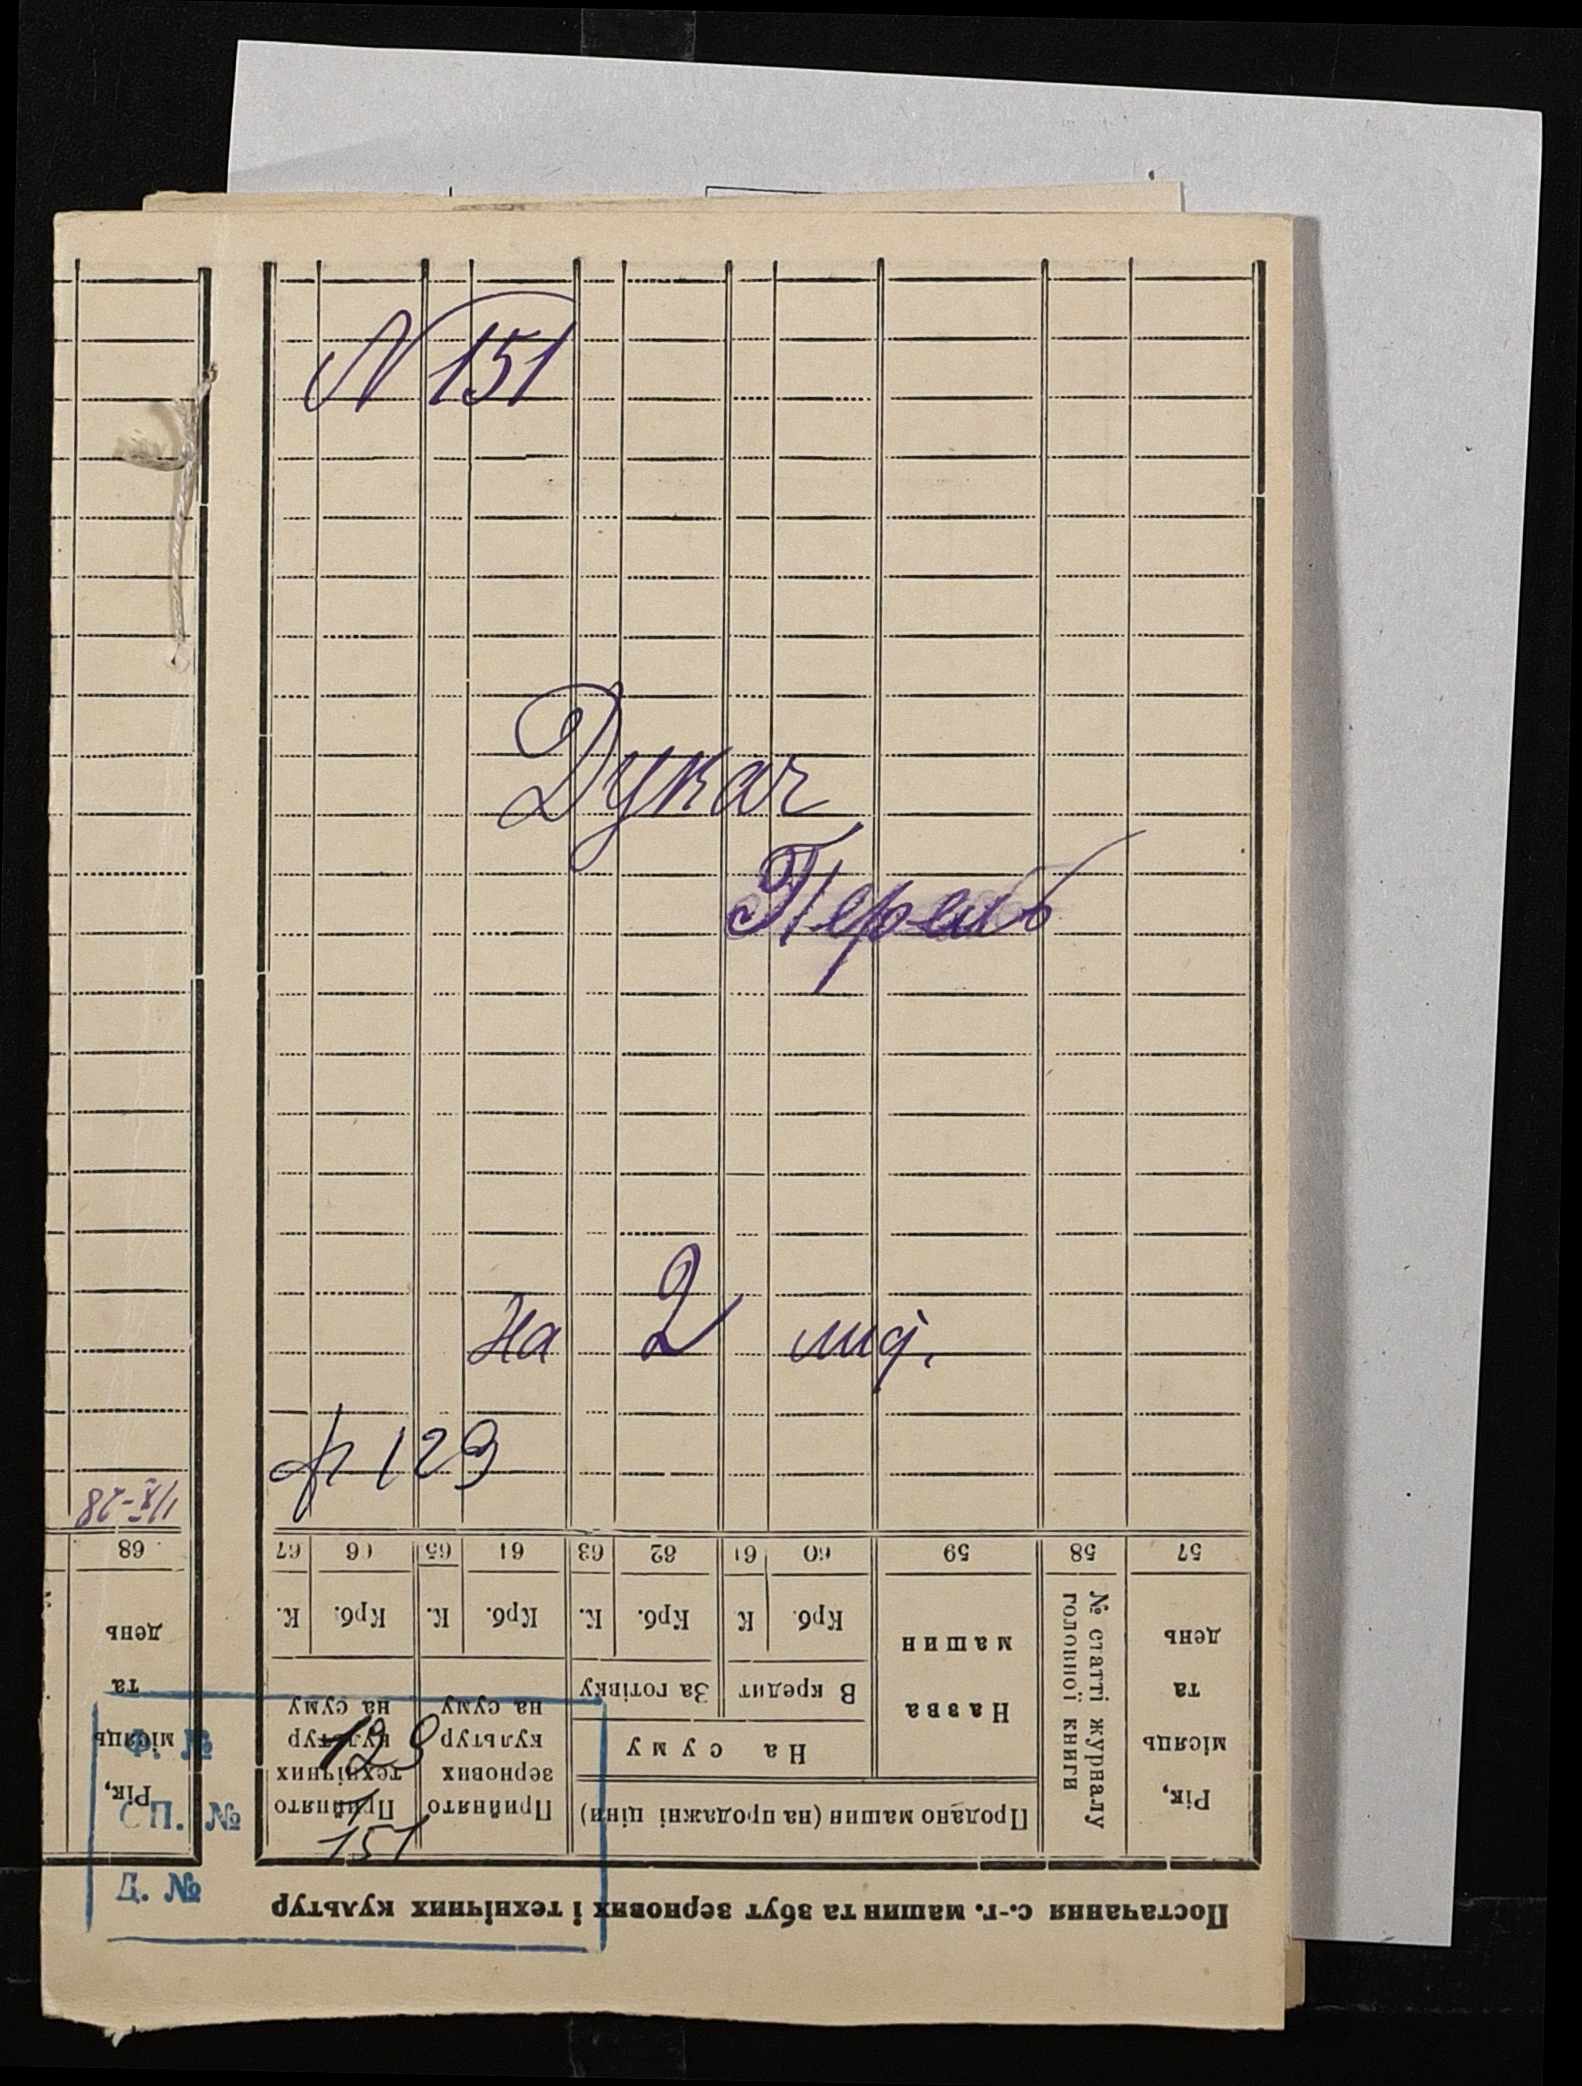 N 151
Дукач
Перель
На 2 лид.
ф 129
1/X-28
Ф. № 129
СП. № 1
Д. № 151
Постачання с.-г. машин та збут зернових і технічних культур
Рік, місяць та день
№ статті журналу головної книги
Продано машин (на продажні ціни)
Назва машин
На суму
В кредит
За готівку
Прийнято зернових культур на суму
Прийнято технічних культур на суму
Рік, місяць та день
Крб. К Крб. К. Крб. К. Крб. К.
57 58 59 60 61 62 63 64 65 66 67
68